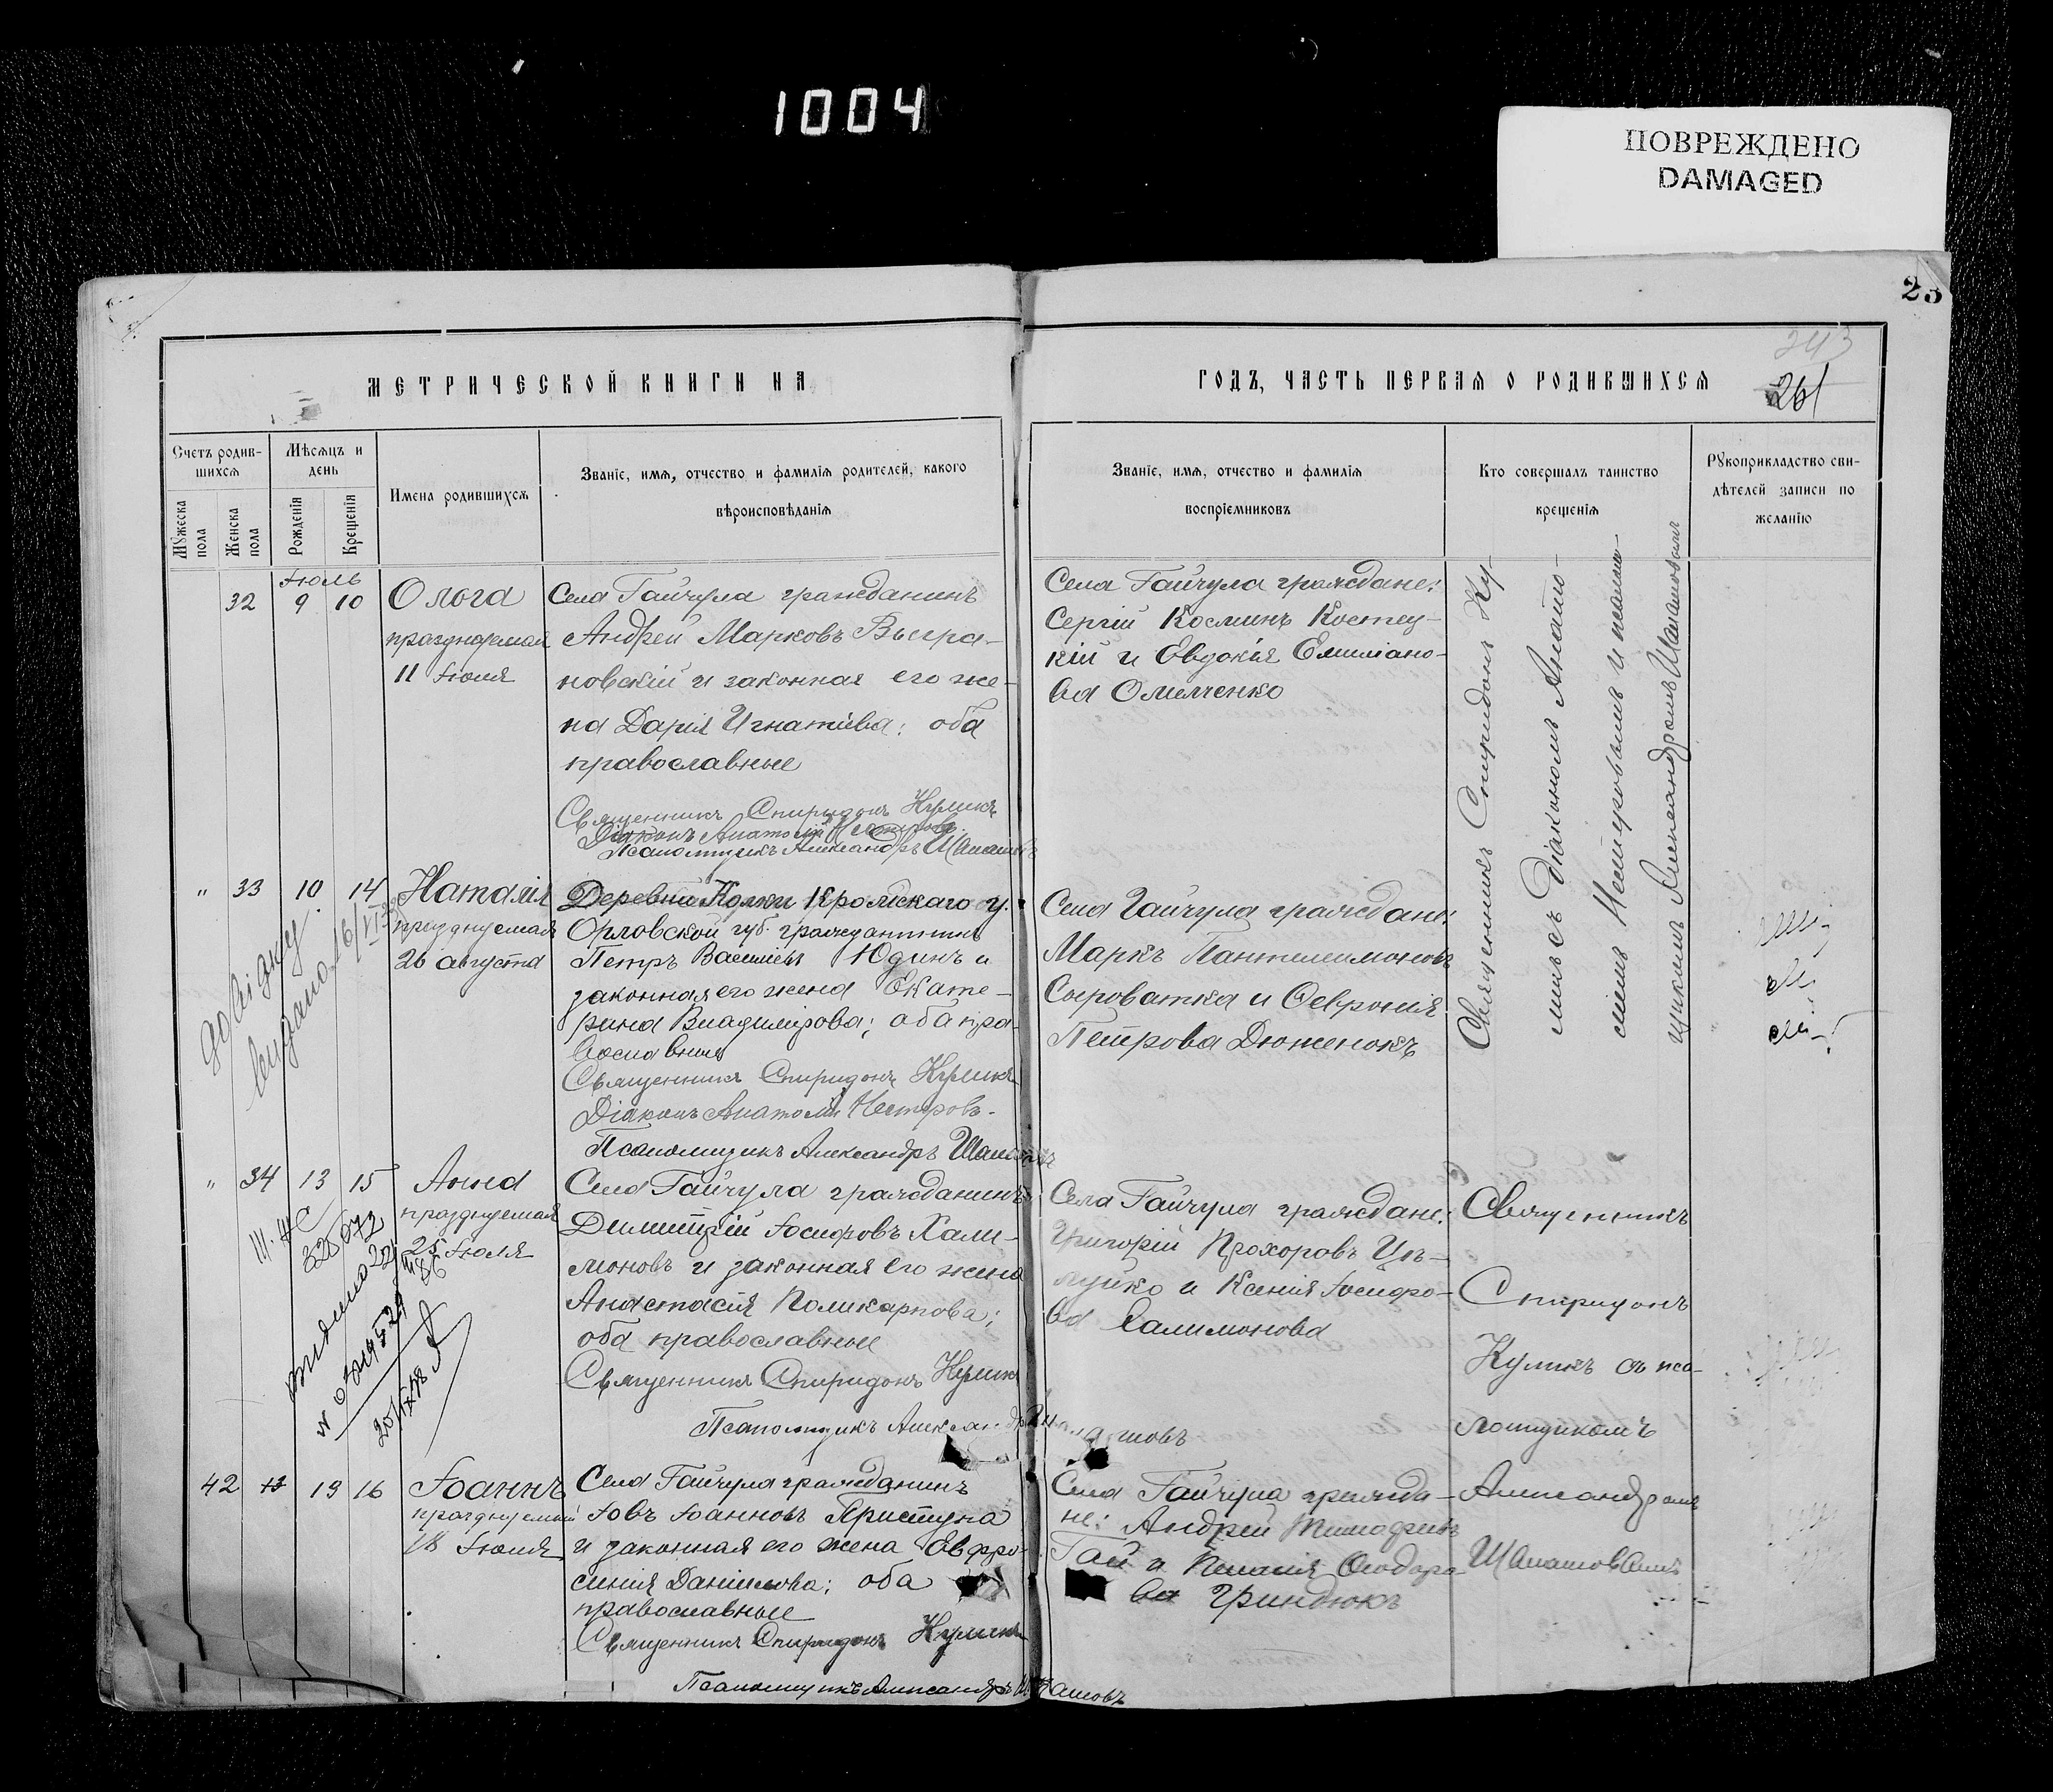 1004
ПОВРЕЖДЕНО
DAMAGED
23
243
261
МЕТРИЧЕСКОЙ КНИГИ НА
ГОДЪ, ЧАСТЬ ПЕРВАЯ О РОДИВШИХСЯ
Счетъ родив-
шихся
Мѣсяцъ и
день
Мужеска
пола
Женска
пола
Рожденія
Крещенія
Имена родившихся
Званіе, имя, отчество и фамилія родителей, какого
вѣроисповѣданія
Званіе, имя, отчество и фамилія
воспріемниковъ
Кто совершалъ таинство
крещенія
Рукоприкладство сви-
дѣтелей записи по
желанію
Іюль
32 9 10
Ольга
празднуемая
11 Іюля
Села Гайчула гражданинъ
Андрей Марковъ Выгра-
новскій и законная его же-
на Дарія Игнатіева; оба
православные
Священникъ Спиридонъ Куликъ
Діаконъ Анатолій Нестеровъ
Псаломщикъ Александръ Шалашовъ
Села Гайчула граждане:
Сергій Косминъ Костец-
кій и Евдокія Емиліано-
ва Омельченко
Священникъ Спиридонъ Ку-
ликъ съ Діакономъ Анато-
ліемъ Нестеровымъ и псалом-
щикомъ Александромъ Шалашовымъ
" 33 10 14
Наталія
празднуемая
26 августа
Деревни Кромскаго у.
Орловской губ. гражданинъ
Петръ Васильевъ Юдинъ и
законная его жена Екате-
рина Владимірова; оба пра-
вославные
Священникъ Спиридонъ Куликъ
Діаконъ Анатолій Нестеровъ.
Псаломщикъ Александръ Шалашовъ
Села Гайчула граждане:
Маркъ Пантелеимоновъ
Сыроватка и Февронія
Петрова Дюженокъ
довідку
видано 16/VI
" 34 13 15
Анна
празднуемая
25 Іюля
Села Гайчула гражданинъ
Димитрій Іосифовъ Хали-
моновъ и законная его жена
Анастасія Поликарпова;
оба православные
Священникъ Спиридонъ Куликъ
Псаломщикъ Александръ Шалашовъ
Села Гайчула граждане:
Григорій Прохоровъ Цы-
и Ксенія Іосифо-
ва Халимонова
Священникъ
Спиридонъ
Куликъ съ пса-
ломщикомъ
Александромъ
Шалашовымъ
42 13 16
Іоаннъ
празднуемый
Іюля
Села Гайчула гражданинъ
Іовъ Іоанновъ Приступа
и законная его жена Евфро-
синія Даніилова; оба
православные
Священникъ Спиридонъ Куликъ
Псаломщикъ Александръ Шалашовъ
Села Гайчула гражда-
не: Андрей Тимофеевъ
Гай и Пелагія Феодоро-
ва Гриндюкъ